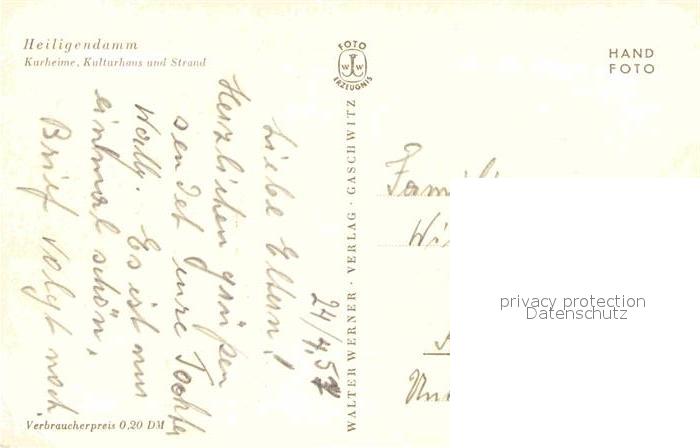 Heiligendamm
Kurheime, Kulturhaus und Strand
FOTO
W W
ERZEUGNIS
HAND
FOTO
24/7.57
Liebe Eltern!
Herzlichen grüßen
sendet eure Tochter
Wally. Es ist nur
einmal schön.
Brief volgt noch
WALTER WERNER · VERLAG · GASCHWITZ
Famili
Wi
privacy protection
Datenschutz
Verbraucherpreis 0,20 DM